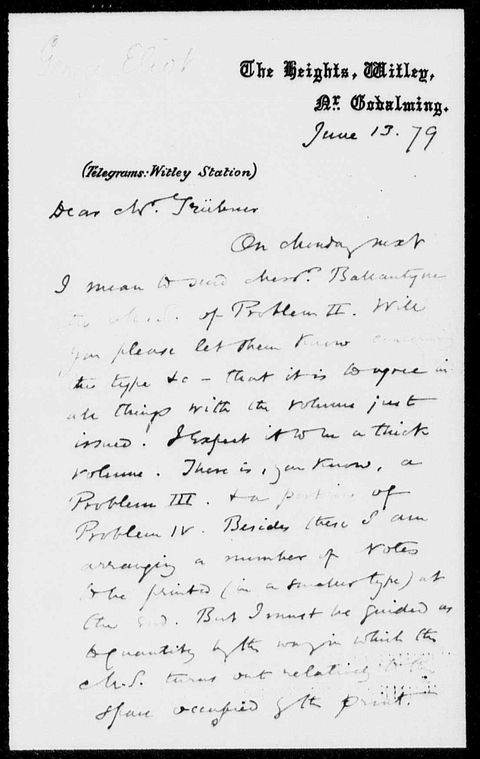 George Eliot
The Heights, Witley,
Nr. Godalming.
June 13. 79
(Telegrams: Witley Station)
Dear Mr. Trübner
On Monday next
I mean to send Messrs. Ballantyne
the M.S. of Problem II. Will
you please let them know concerning
the type &c – that it is to agree in
all things with the volume just
issued. I expect it to be a thick
volume. There is, you know, a
Problem III. & a portion of
Problem IV. Besides these I am
arranging a number of Notes
to be printed (in a smaller type) at
the end. But I must be guided as
to quantity by the way in which the
M.S. turns out relatively to the
space occupied by the print.